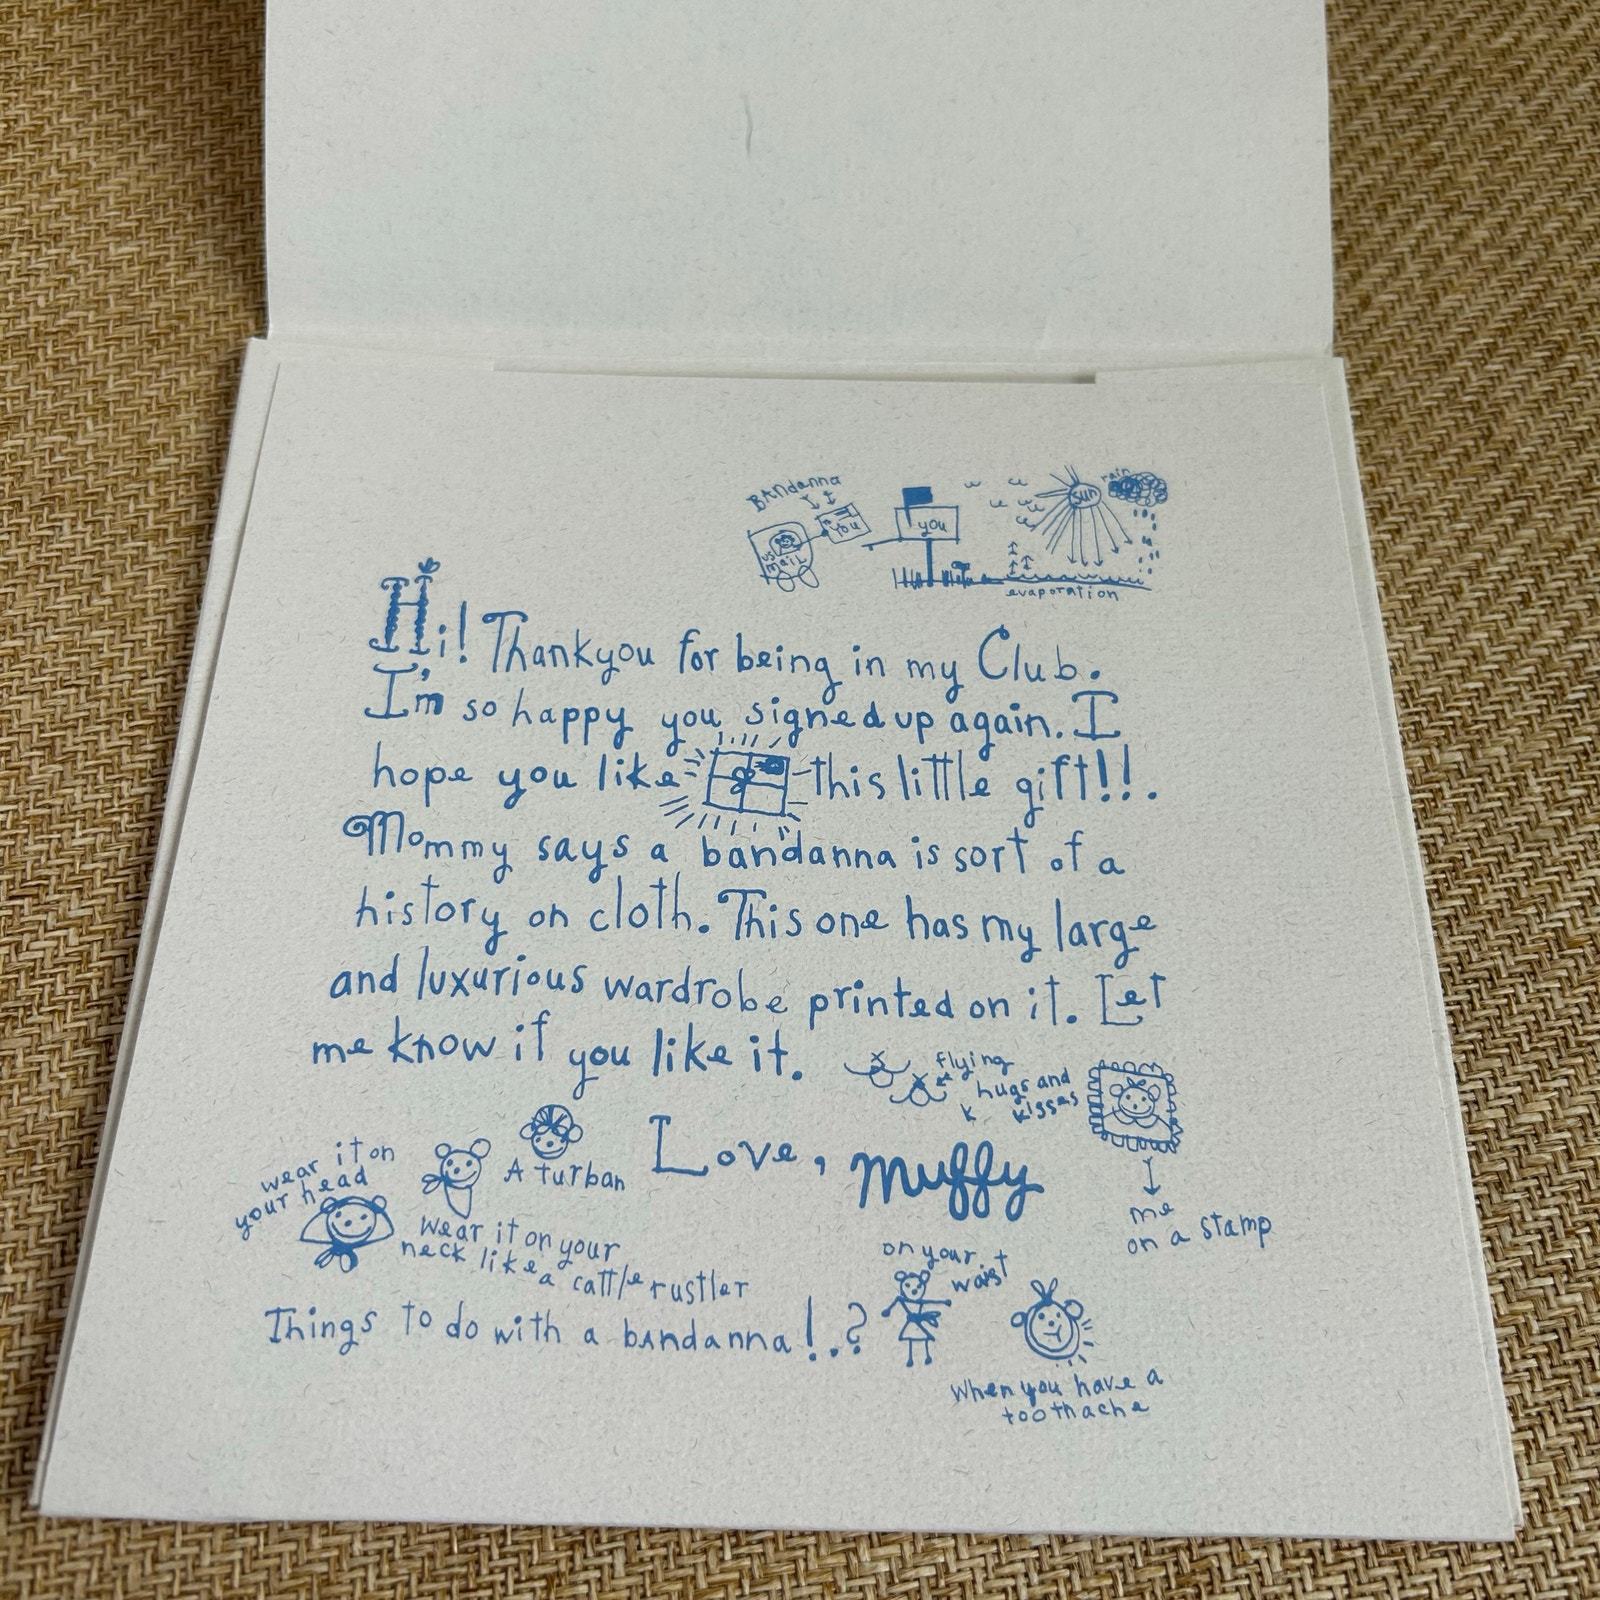 BAndanna
US MAIL
You
you
sun
rain
evaporation
Hi! Thankyou for being in my Club.
I'm so happy you signed up again. I
hope you like this little gift!!!.
Mommy says a bandanna is sort of a
history on cloth. This one has my large
and luxurious wardrobe printed on it. Let
me know if you like it.
flying
hugs and
kisses
Love, Muffy
me
on a stamp
wear it on
your head
A turban
Wear it on your
neck like a cattle rustler
on your
waist
Things to do with a bandanna!..?
When you have a
toothache